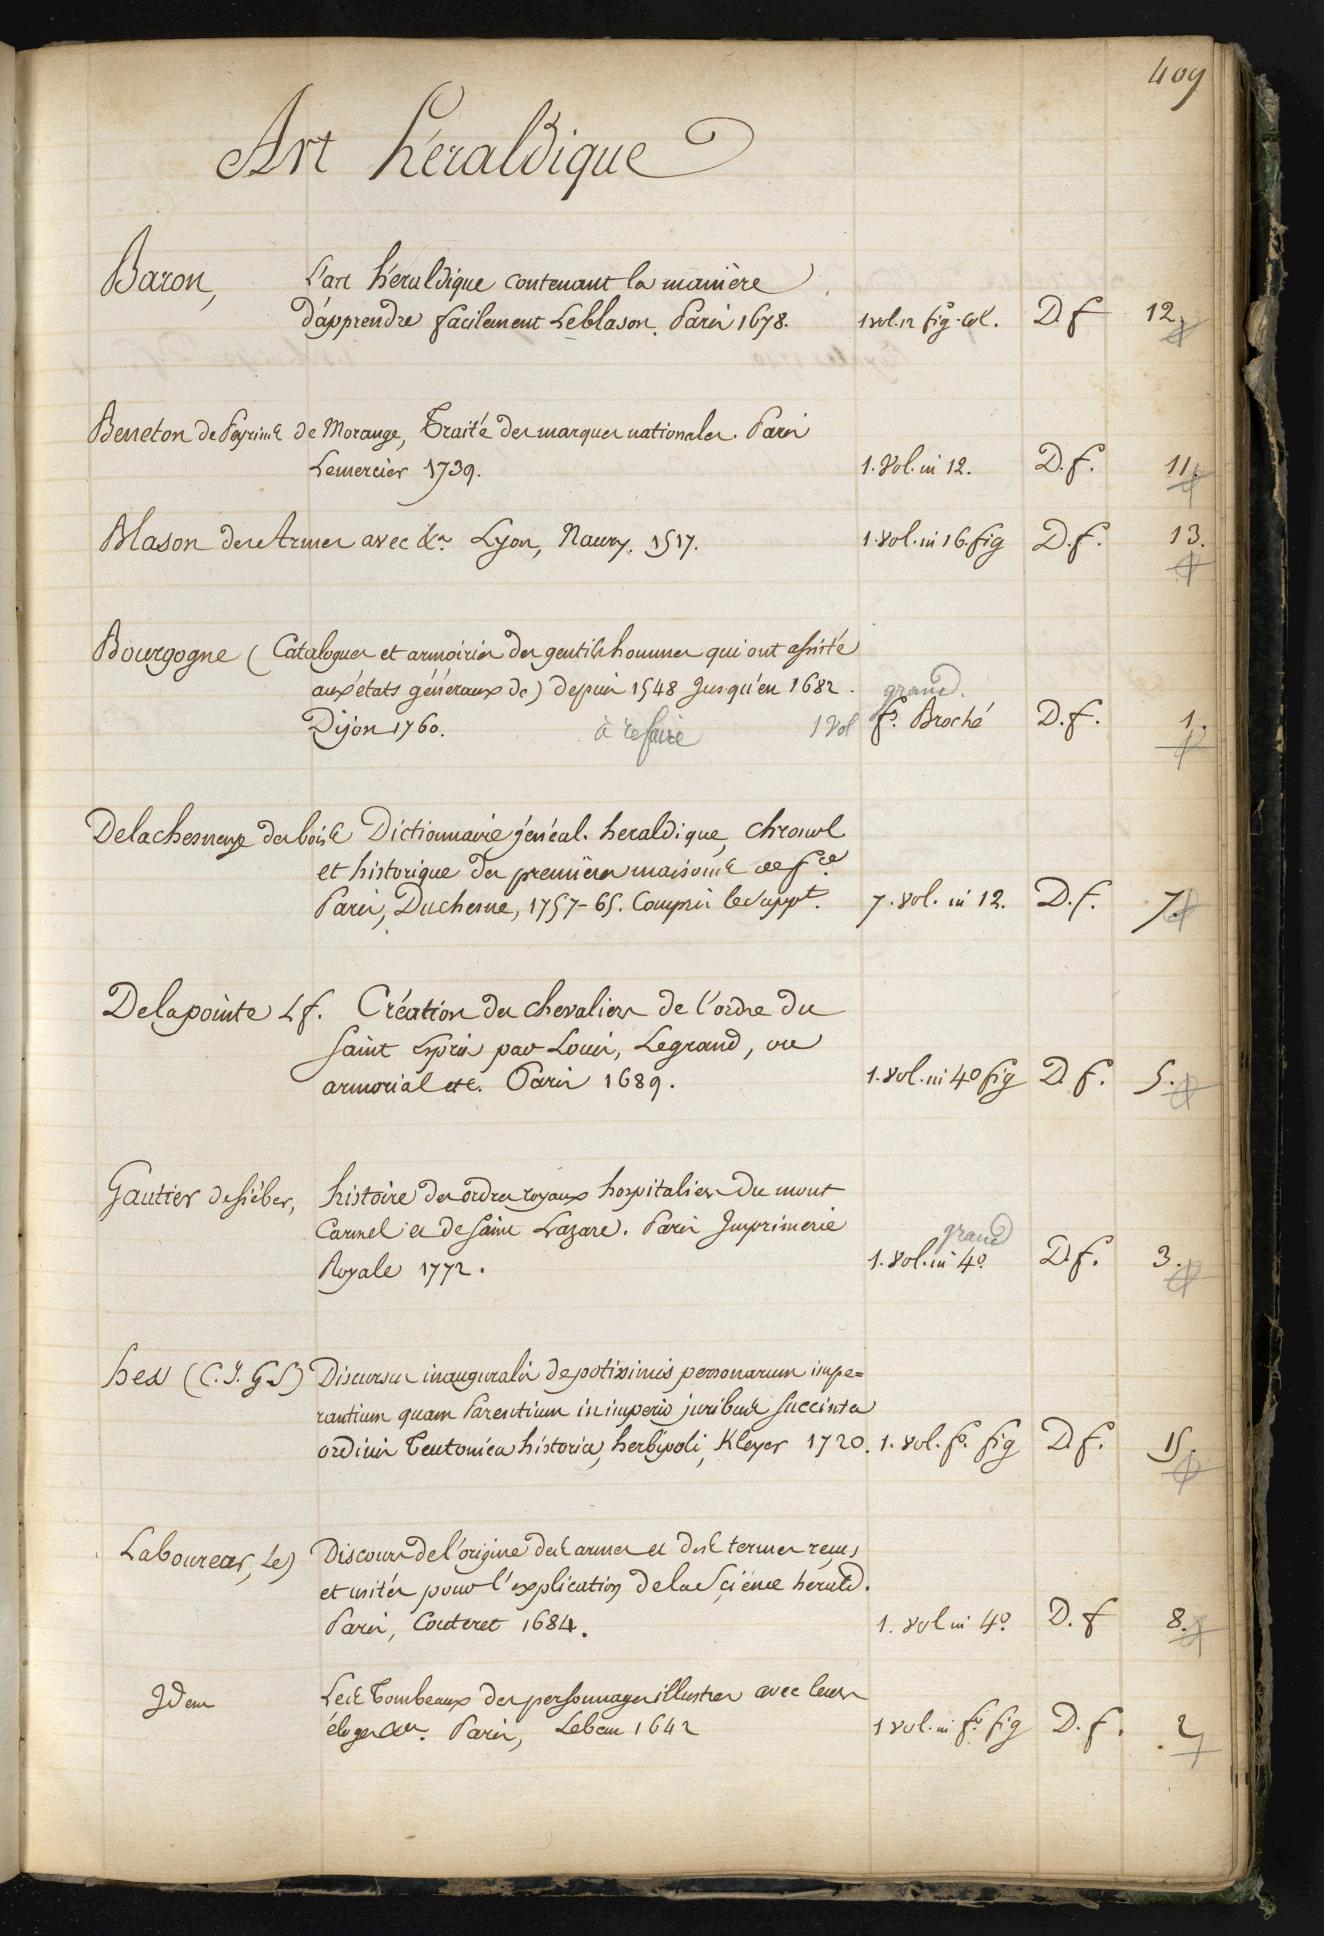 409
Art héraldique
Baron, L'art héraldique contenant la manière
d'apprendre facilement Leblason. Paris 1678. 1 vol. 12 fig. col. D. f 12.
Beneton de Peyrins de Morange, Traité des marques nationales. Paris
Lemercier 1739. 1. Vol. in 12. D. f. 11.
Blason des Armes avec &a. Lyon, Naury. 1517. 1. vol. in 16. fig D. f. 13.
Bourgogne (Catalogues et armoiries des gentilshommes qui ont assisté
aux états généraux de) depuis 1548 Jusqu'en 1682. grand.
Dijon 1760. à refaire 1 vol fo. Broché D. f. 1.
Delachesneye des bois Dictionnaire généal. heraldique, chronol
et historique des premières maisons de fce.
Paris, Duchesne, 1757-65. Compris le suppt. 7. vol. in 12. D. f. 7.
Delapointe L f. Création des chevaliers de l'ordre du
saint Esprit par Louis, Legrand, ou
armorial etc. Paris 1689. 1. vol. in 4o fig D. f. 5.
Gautier de siébes, histoire des ordres royaux hospitaliers du mont
Carmel et de saint Lazare. Paris Imprimerie grand
Royale 1772. 1. vol. in 4o. D. f. 3.
hess (C. J. G. S) Discursus inauguralis de potissimis personarum impe=
rantium quam Parentium in imperio juribus succinta
ordinis Teutonica historia, herbipoli, Kleyer 1720. 1. vol. fo. fig D. f. 15.
Laboureur, Le) Discours de l'origine des armes et des termes reçus
et usités pour l'explication de la Science hérald.
Paris, Couteret 1684. 1. vol in 4o. D. f 8.
Idem Les Tombeaux des personnages illustres avec leurs
éloges &a. Paris, Lebeau 1642 1 vol. in fo. fig D. f. 2